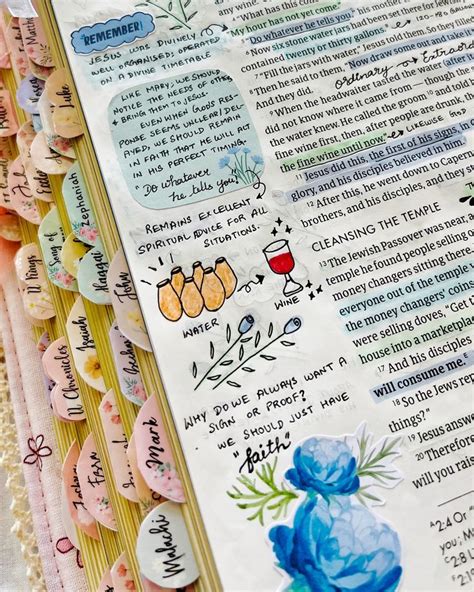 REMEMBER!
JESUS WAS DIVINELY
WELL ORGANISED; OPERATED
ON A DIVINE TIMETABLE
LIKE MARY, WE SHOULD
NOTICE THE NEEDS OF OTHERS
+ BRING THEM TO JESUS.
EVEN WHEN GOD'S RES-
PONSE SEEMS UNCLEAR/DEL-
AYED, WE SHOULD REMAIN
IN FAITH THAT HE WILL ACT
IN HIS PERFECT TIMING.
Do whatever
he tells you!
REMAINS EXCELLENT
SPIRITUAL ADVICE FOR ALL
SITUATIONS.
WATER
WINE
WHY DO WE ALWAYS WANT A
SIGN OR PROOF?
WE SHOULD JUST HAVE
"faith"
My hour has not yet come
Do whatever he tells you."
Now six stone water jars had been set there for Jewish
contained twenty or thirty gallons.
7 "Fill the jars with water," Jesus told them. So they
8 Then he said to them, "Now draw some out and take
And they did.
ordinary
9 When the headwaiter tasted the water
did not know where it came from — though the
the water knew. He called the groom 10 and told
the wine first, then, after people are drunk,
the fine wine until now."
LIKEWISE
11 Jesus did this, the first of his signs,
glory, and his disciples believed in him.
12 After this, he went down to Caper
brothers, and his disciples, and they
CLEANSING THE TEMPLE
13 The Jewish Passover was near
temple he found people selling
money changers sitting there
everyone out of the temple
the money changers' coins
were selling doves, "Get
house into a marketplace
17 And his disciples
will consume me.
18 So the Jews
things?"
19 Jesus answered
20 Therefore
will you raise
2:4 Or
you; M
Luke
Zephaniah
Song of
Haggai
John
II Kings
Isaiah
II Chronicles
Ezra
Mark
Malachi